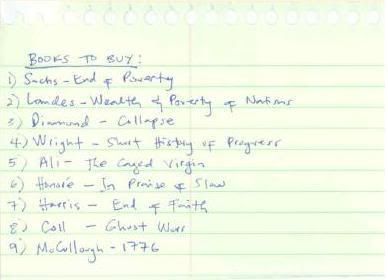 BOOKS TO BUY:
1) Sachs - End of Poverty
2) Landes - Wealth & Poverty of Nations
3) Diamond - Collapse
4) Wright - Short History of Progress
5) Ali - The Caged Virgin
6) Honoré - In Praise of Slow
7) Harris - End of Faith
8) Coll - Ghost Wars
9) McCullough - 1776